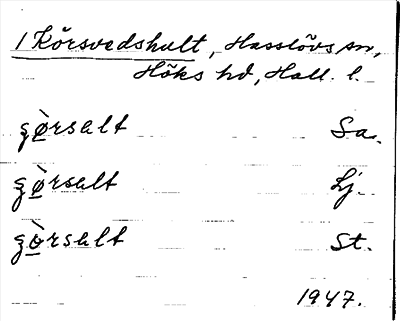 1 Körsvedshult, Hasslövs sn,
Höks hd, Hall. l.
gö̀rsalt Sa.
gö̀rsalt Lj.
gö̀rsalt St.
1947.